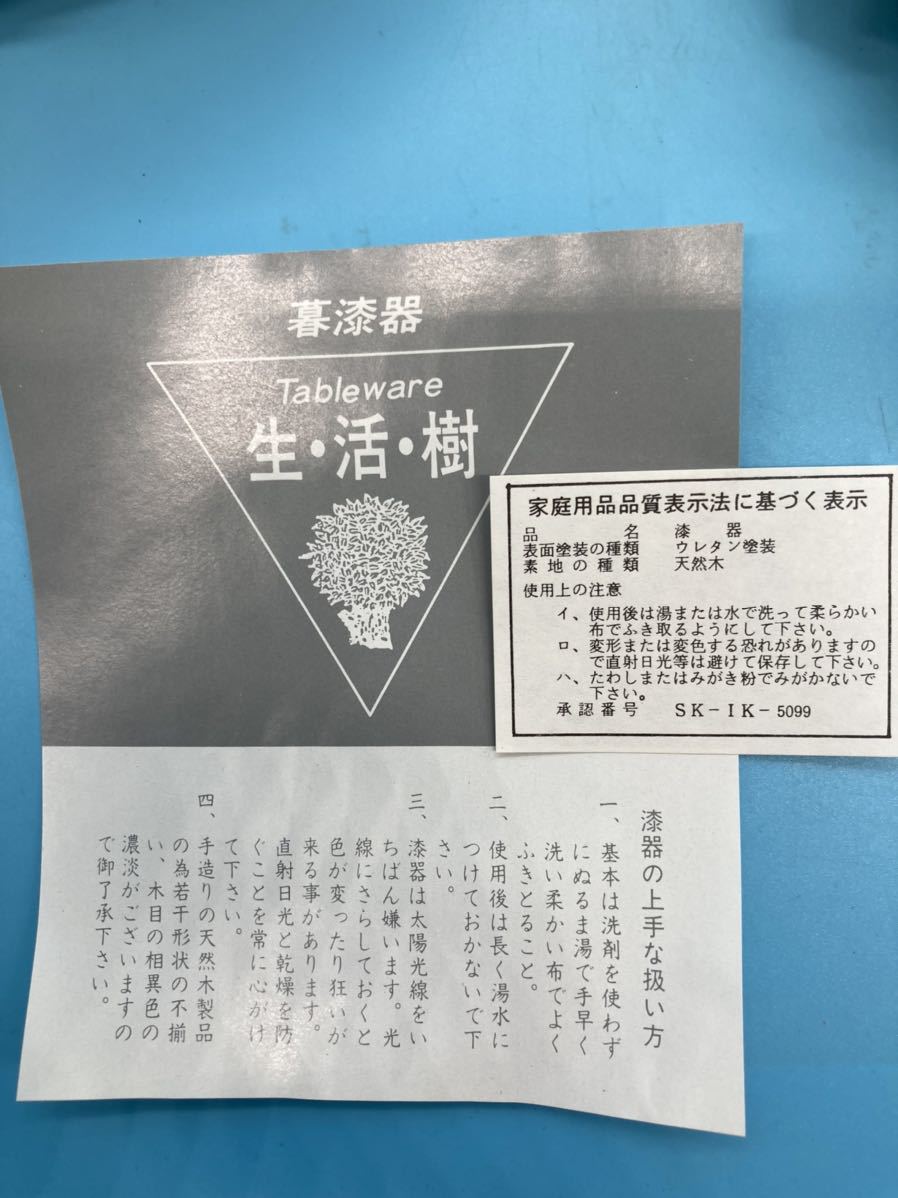 暮漆器
Tableware
生・活・樹
家庭用品品質表示法に基づく表示
品名 漆器
表面塗装の種類 ウレタン塗装
素地の種類 天然木
使用上の注意
イ、使用後は湯または水で洗って柔らかい
布でふき取るようにして下さい。
ロ、変形または変色する恐れがありますの
で直射日光等は避けて保存して下さい。
ハ、たわしまたはみがき粉でみがかないで
下さい。
承認番号 SK-IK-5099
漆器の上手な扱い方
一、基本は洗剤を使わず
にぬるま湯で手早く
洗い柔かい布でよく
ふきとること。
二、使用後は長く湯水に
つけておかないで下
さい。
三、漆器は太陽光線をい
ちばん嫌います。光
線にさらしておくと
色が変ったり狂いが
来る事があります。
直射日光と乾燥を防
ぐことを常に心がけ
て下さい。
四、手造りの天然木製品
の為若干形状の不揃
い、木目の相異色の
濃淡がございますの
で御了承下さい。